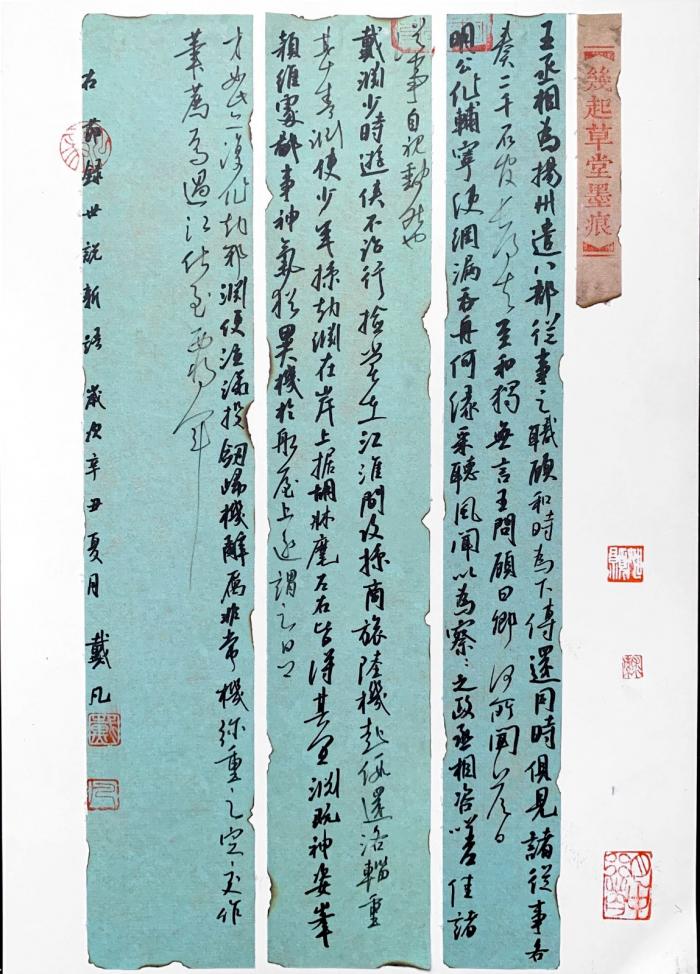 【幾起草堂墨痕】
王丞相為揚州遣八部從事之職顧和時為下傳還同時俱見諸從事各
奏二千石官長得失至和獨無言王問顧曰卿何所聞答曰
明公作輔寧使網漏吞舟何緣采聽風聞以為察〻之政丞相咨嗟佳諸
從事自視缺然也
戴淵少時遊俠不治行檢嘗在江淮間攻掠商旅陸機赴假還洛輜重
甚盛淵使少年掠劫淵在岸上據胡牀麾左右皆得其宜淵既神姿峯
穎雖處鄙事神氣猶異機於船屋上遙謂之曰卿
才如此亦復作劫邪淵便泣涕投劍歸機辭厲非常機彌重之定交作
筆薦焉過江仕至西將軍
右節錄世說新語歲次辛丑夏月 戴凡
戴
凡